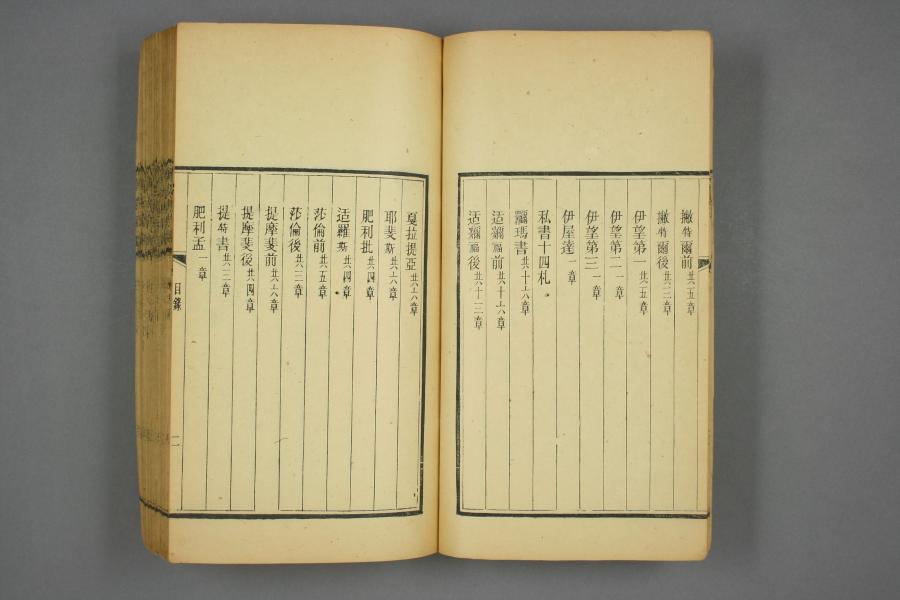 撇特爾前共五章
撇特爾後共三章
伊望第一共五章
伊望第二一章
伊望第三一章
伊屋達一章
私書十四札
爾瑪書共十六章
适爾福前共十六章
适爾福後共十三章
戛拉提亞共六章
耶斐斯共六章
肥利批共四章
适羅斯共四章
莎倫前共五章
莎倫後共三章
提摩斐前共六章
提摩斐後共四章
提特書共三章
肥利孟一章
目錄
二